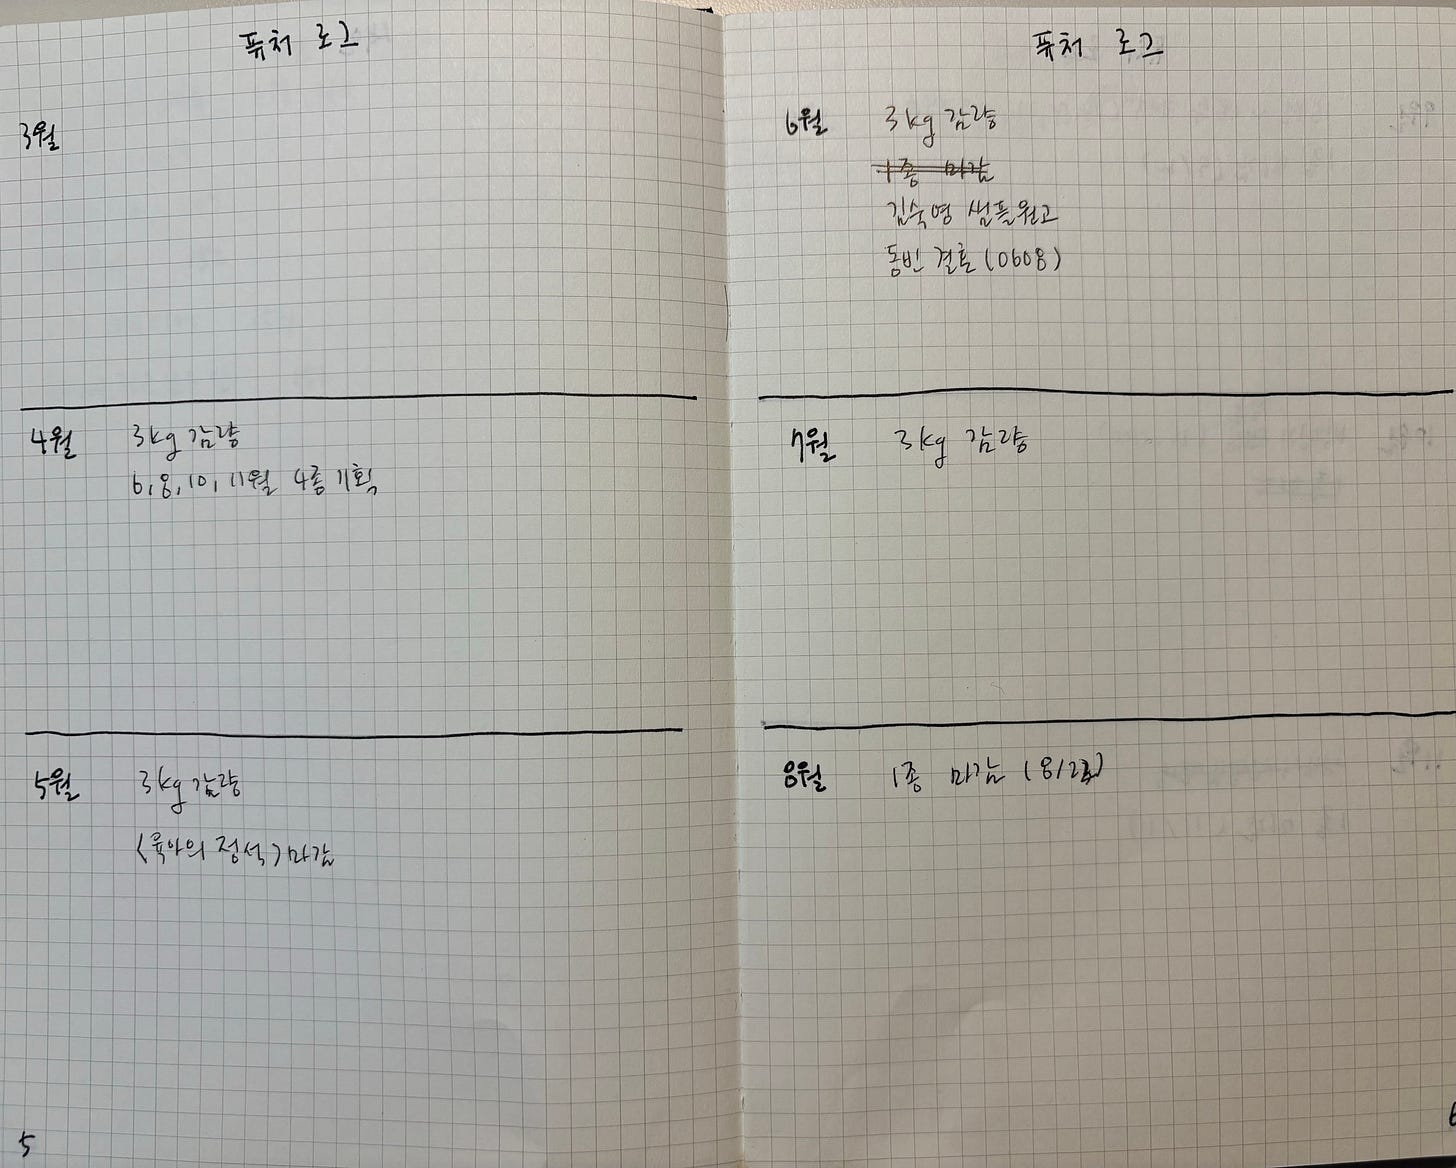 퓨처 로그
3월
4월 3kg 감량
6, 8, 10, 11월 4종 기획
5월 3kg 감량
<육아의 정석> 마감
5
퓨처 로그
6월 3kg 감량
1종 마감
김숙영 샘플원고
동빈 결혼 (0608)
7월 3kg 감량
8월 1종 마감
6